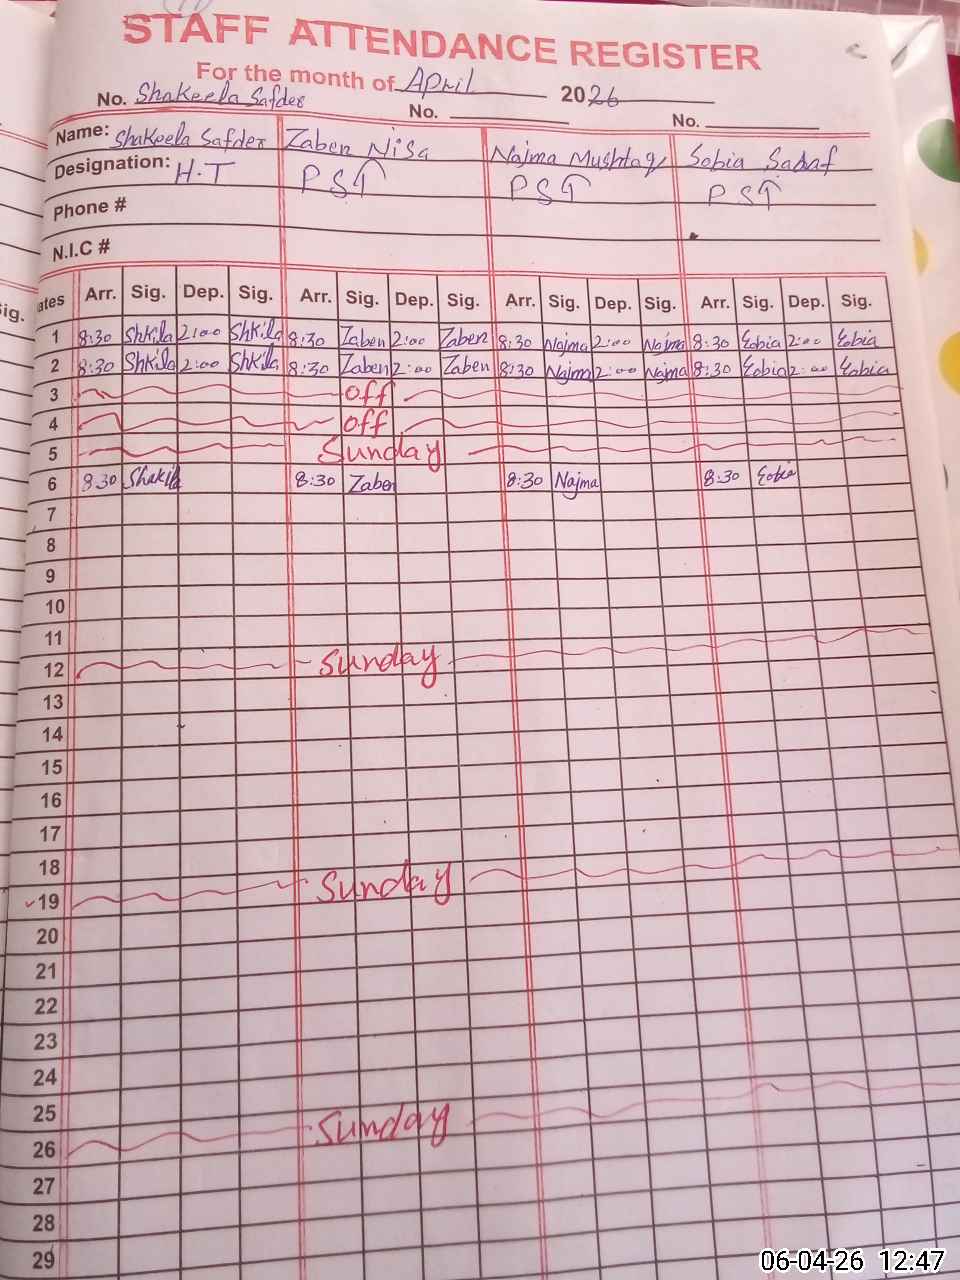 STAFF ATTENDANCE REGISTER
For the month of April 2026
No. Shakeela Safder No. No.
Name: Shakeela Safder Zaben Nisa Najma Mushtaq Sobia Sadaf
Designation: H.T PST PST PST
Phone #
N.I.C #
ates Arr. Sig. Dep. Sig. Arr. Sig. Dep. Sig. Arr. Sig. Dep. Sig. Arr. Sig. Dep. Sig.
1 8:30 Shkila 2:00 Shkila 8:30 Zaben 2:00 Zaben 8:30 Najma 2:00 Najma 8:30 Eobia 2:00 Eobia
2 8:30 Shkila 2:00 Shkila 8:30 Zaben 2:00 Zaben 8:30 Najma 2:00 Najma 8:30 Eobia 2:00 Eobia
3 off
4 off
5 Sunday
6 8:30 Shakila 8:30 Zaben 8:30 Najma 8:30 Eobia
7
8
9
10
11
12 Sunday
13
14
15
16
17
18
19 Sunday
20
21
22
23
24
25
26 Sunday
27
28
29
ig.
06-04-26 12:47